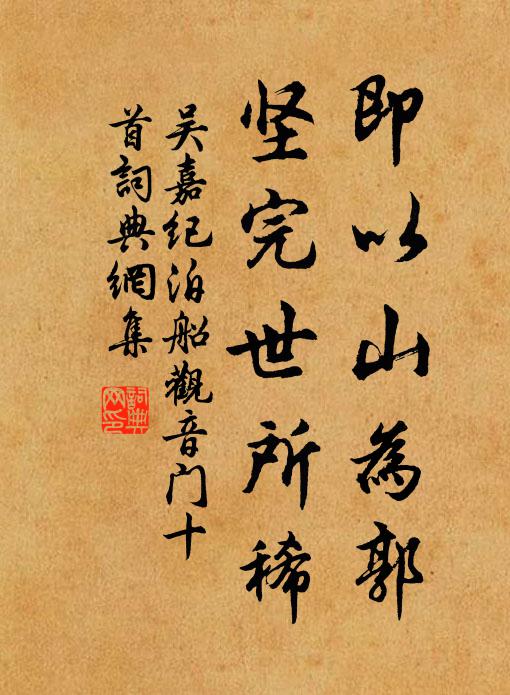 即以山為郭
坚完世所稀
吴嘉纪泊船觀音门十
首詞典網集
詞典
网印